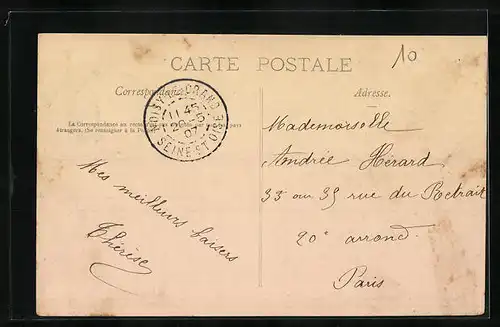 10
CARTE POSTALE
Correspondance
Adresse.
NOISY-LE-GRAND
11 45
07
SEINE-ET-OISE
La Correspondance au recto
pays
étrangers, (Se renseigner à la
Mademoiselle
Andrée Hérard
33 ou 35 rue du Retrait
20e arrond.
Paris
Mes meilleurs baisers
Thérèse